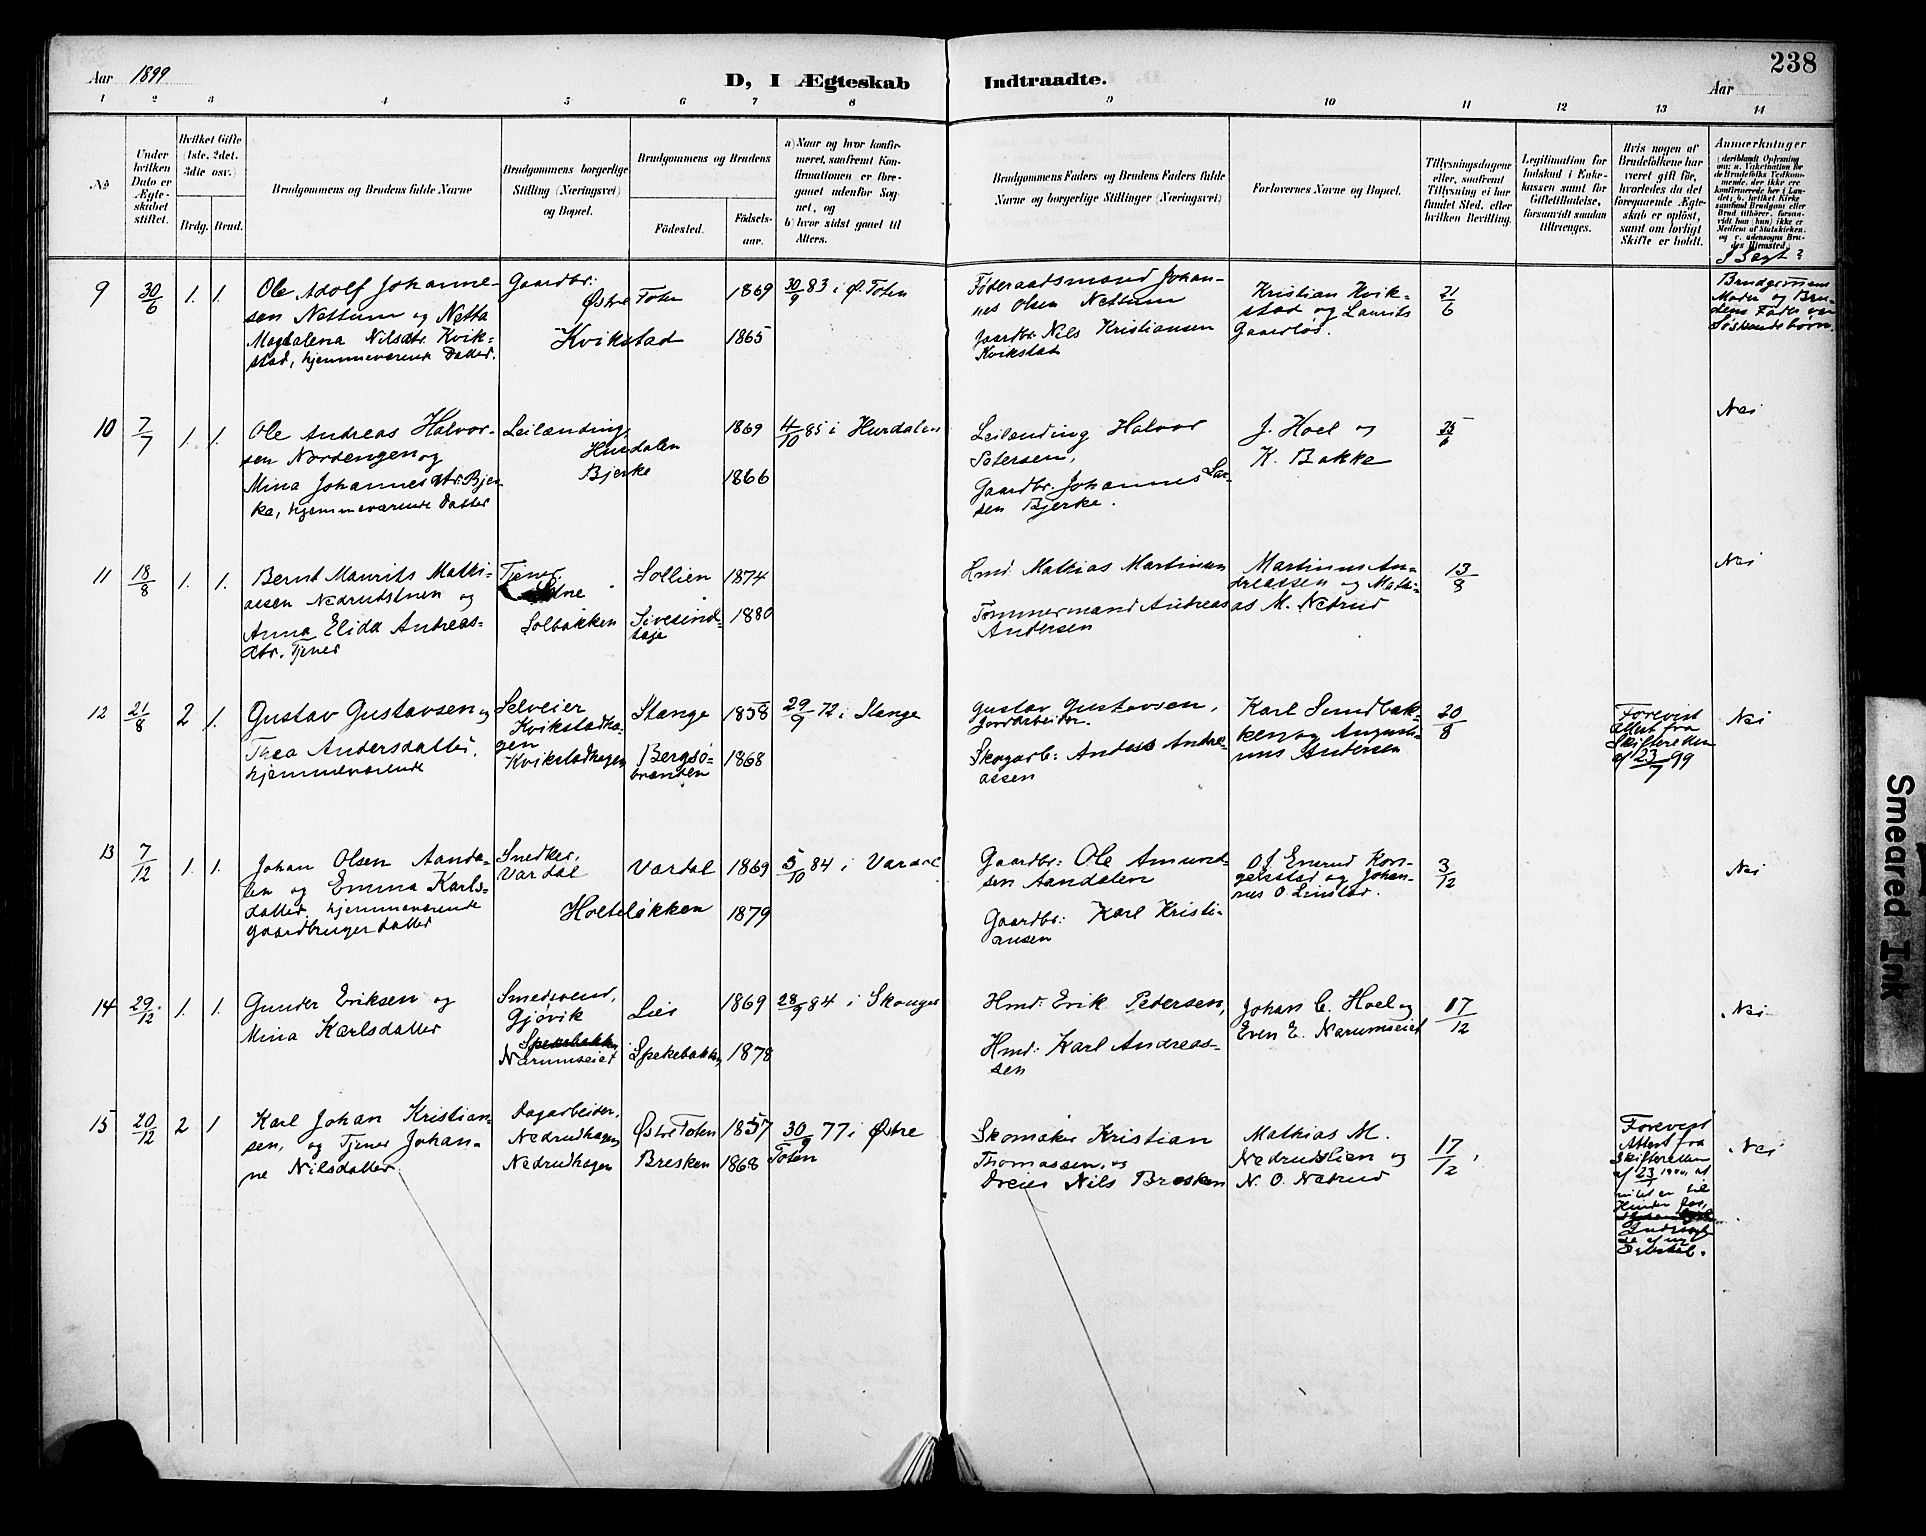 238
Aar 1899
D, I Ægteskab Indtraadte.
Aar
1 2 3 4 5 6 7 8 9 10 11 12 13 14
No
Under hvilken Dato er Ægteskabet stiftet.
Hvilket Gifte (1ste, 2det, 3die osv.)
Brdg. Brud.
Brudgommens og Brudens fulde Navne
Brudgommens borgerlige Stilling (Næringsvei) og Bopæl.
Brudgommens og Brudens
Fødested.
Fødselsaar.
a) Naar og hvor konfirmeret, saafremt Konfirmationen er foregaaet udenfor Sognet, og
b) hvor sidst gaaet til Alters.
Brudgommens Faders og Brudens Faders fulde Navne og borgerlige Stillinger (Næringsvei)
Forlovernes Navne og Bopæl.
Tillysningsdagene eller, saafremt Tillysning ei har fundet Sted, efter hvilken Bevilling.
Legitimation for Indskud i Enkekassen samt for Giftetilladelse, forsaavidt saadan tiltrænges.
Hvis nogen af Brudefolkene har været gift før, hvorledes da det foregaaende Ægteskab er opløst, samt om lovligt Skifte er holdt.
Anmærkninger
I Slægt?
9 30/6 1. 1.
Ole Adolf Johanne-
sen Nettum og Netta
Magdalena Nilsdtr. Kvik-
stad, hjemmeværende Datter.
Gaardbr:
Østre Toten
Kvikstad
1869
1865
30/9 83 i Ø. Toten
Føderaadsmand Johan-
nes Olsen Nettum
Gaardbr. Nils Kristiansen
Kvikstad
Kristian Kvik-
stad og Laurits
Gaarløs.
21/6
Brudgommens
Moder og Bru-
dens Fader er
Søskendebørn.
10 7/7 1. 1.
Ole Andreas Halvor-
sen Nordengen og
Mina Johannesdtr. Bjer-
ke, hjemmeværende Datter
Leilænding,
Hurdalen
Bjerke
1869
1866
4/10 85 i Hurdalen
Leilænding Halvor
Petersen,
Gaardbr. Johannes Lar-
sen Bjerke.
J. Hoel og
K. Bakke
25/6
Nei
11 18/8 1. 1.
Bernt Maurits Mathi-
aesen Nedrudstuen og
Anna Elida Andreas-
dtr. Tjener
Tjener
Solbakken
Sollien
Sivesind-
1874
1880
Hmd. Mathias Martinsen
Tømmermand Andreas
Andersen
Martinus An-
dreassen og Mathi-
as M. Nedrud
13/8
Nei
12 21/8 2 1.
Gustav Gustavsen og
Thea Andersdatter,
hjemmeværende
Selveier
Kvikstadha-
gen
Kvikstadhagen
Stange
Bergsø-
branden
1858
1868
29/9 72 i Stange
Gustav Gustavsen,
Jordarbeider.
Skogarb: Anders Andre-
assen
Karl Sundbak-
ken og August-
inus Andersen
20/8
Forevist
Attest fra
Skifteretten
af 23/7 99
Nei
13 7/12 1. 1.
Johan Olsen Aanda-
len og Emma Karls-
datter, hjemmeværende
gaardbruger datter
Snedker,
Vardal
Holteløkken
Vardal
1869
1879
5/10 84 i Vardal
Gaardbr: Ole Amund-
sen Aandalen
Gaardbr: Karl Kristi-
ansen
O J Enerud Kon-
gelstad og Johan-
nes O Linstad.
3/12
Nei
14 29/12. 1. 1.
Gunder Eriksen og
Mina Karlsdatter
Smedsvend,
Gjøvik
Spekebakken
Narumseiet
Lier
Spekebakken,
1869
1878
28/9 84 i Skouger
Hmd: Erik Pedersen,
Hmd: Karl Andreas-
sen
Johan C. Hoel og
Even E. Narumseiet
17/12
Nei
15 20/12 2 1
Karl Johan Kristian-
sen, og Tjener Johan-
ne Nilsdatter.
Dagarbeider,
Nedrudhagen
Nedrudhagen
Østre Toten
Bresken
1857
1868
30/9 77 i Østre
Toten
Skomaker Kristian
Thomassen, og
Dreier Nils Bresken
Mathias M.
Nedrudslien og
N. O. Nedrud
17/12.
Forevist
Attest fra
Skifteretten
af 23/1 1900, at
intet er til
Hinder for
Indtrædel-
se af nyt
Nei
Smeared Ink